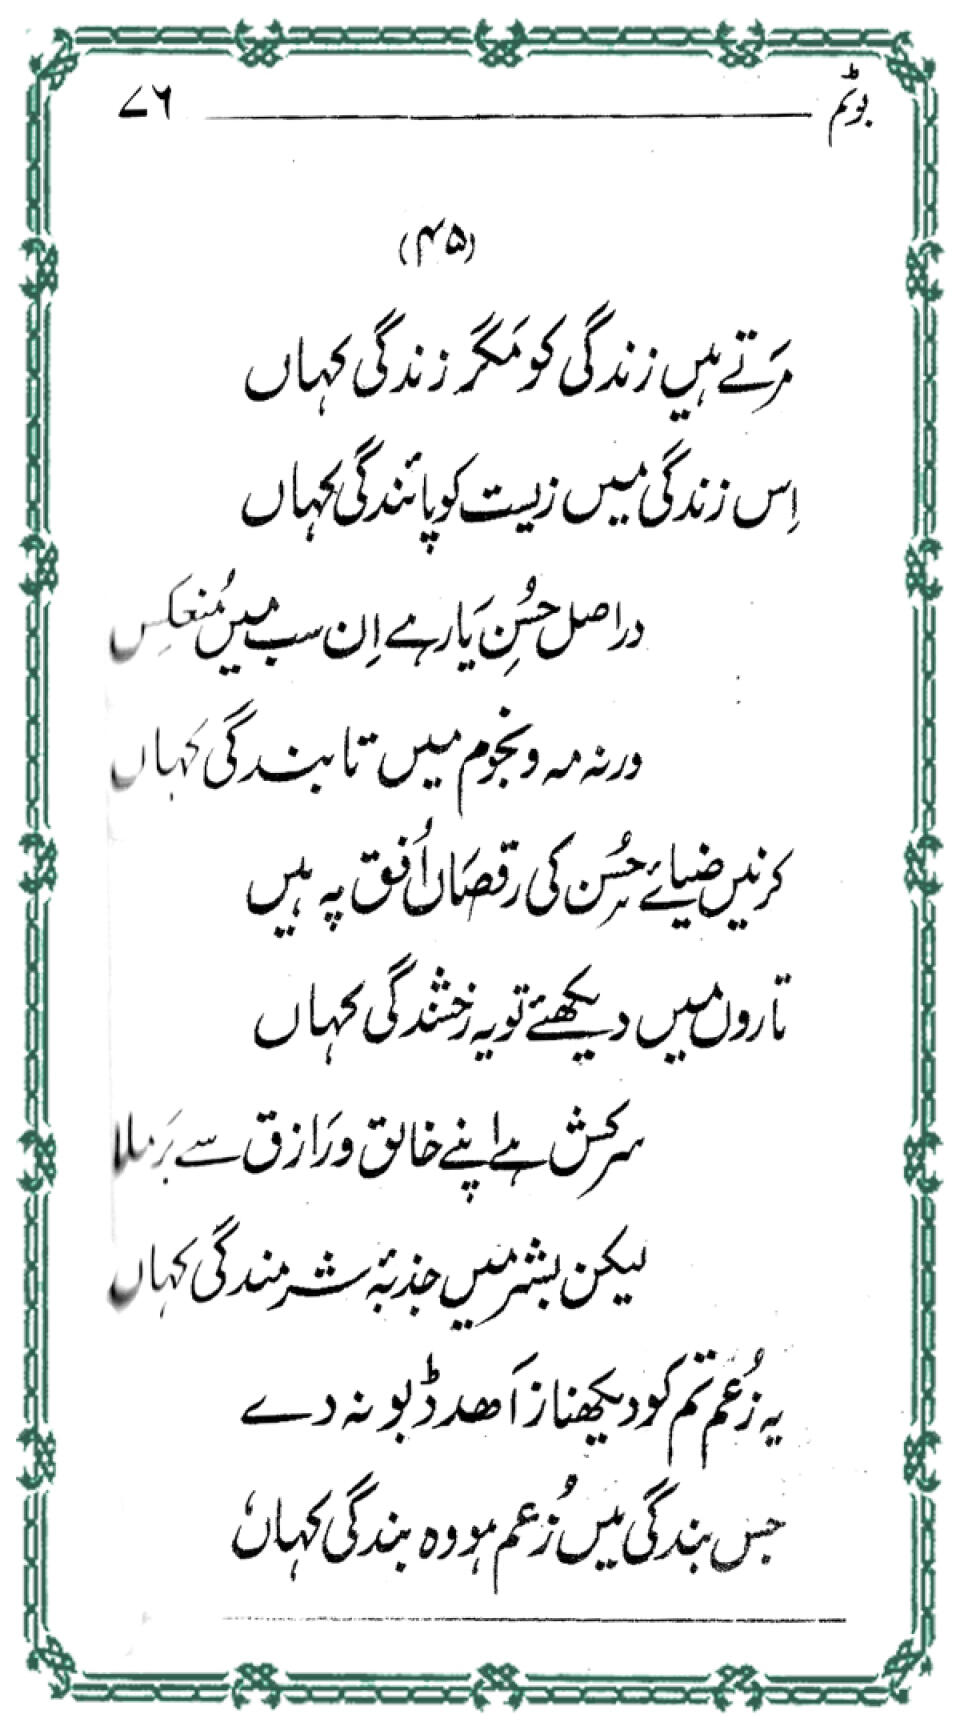 بوٹم ۷۶
(۴۵)
مَرتے ہیں زندگی کو مَگر زندگی کہاں
اِس زندگی میں زیست کو پائندگی کہاں
دراصل حُسنِ یَار ہے اِن سب میں مُنعکِس
ورنہ مہ و نجوم میں تابندگی کہاں
کرنیں ضیائے حُسن کی رقصَاں اُفق پہ ہیں
تاروں میں دیکھئے تو یہ رَخشندگی کہاں
سرکش ہے اپنے خالق و رَازق سے بَرملا
لیکن بشر میں جذبۂ شرمندگی کہاں
یہ زُعم تم کو دیکھنا زاَھد ڈبو نہ دے
جس بندگی میں زُعم ہو وہ بندگی کہاں